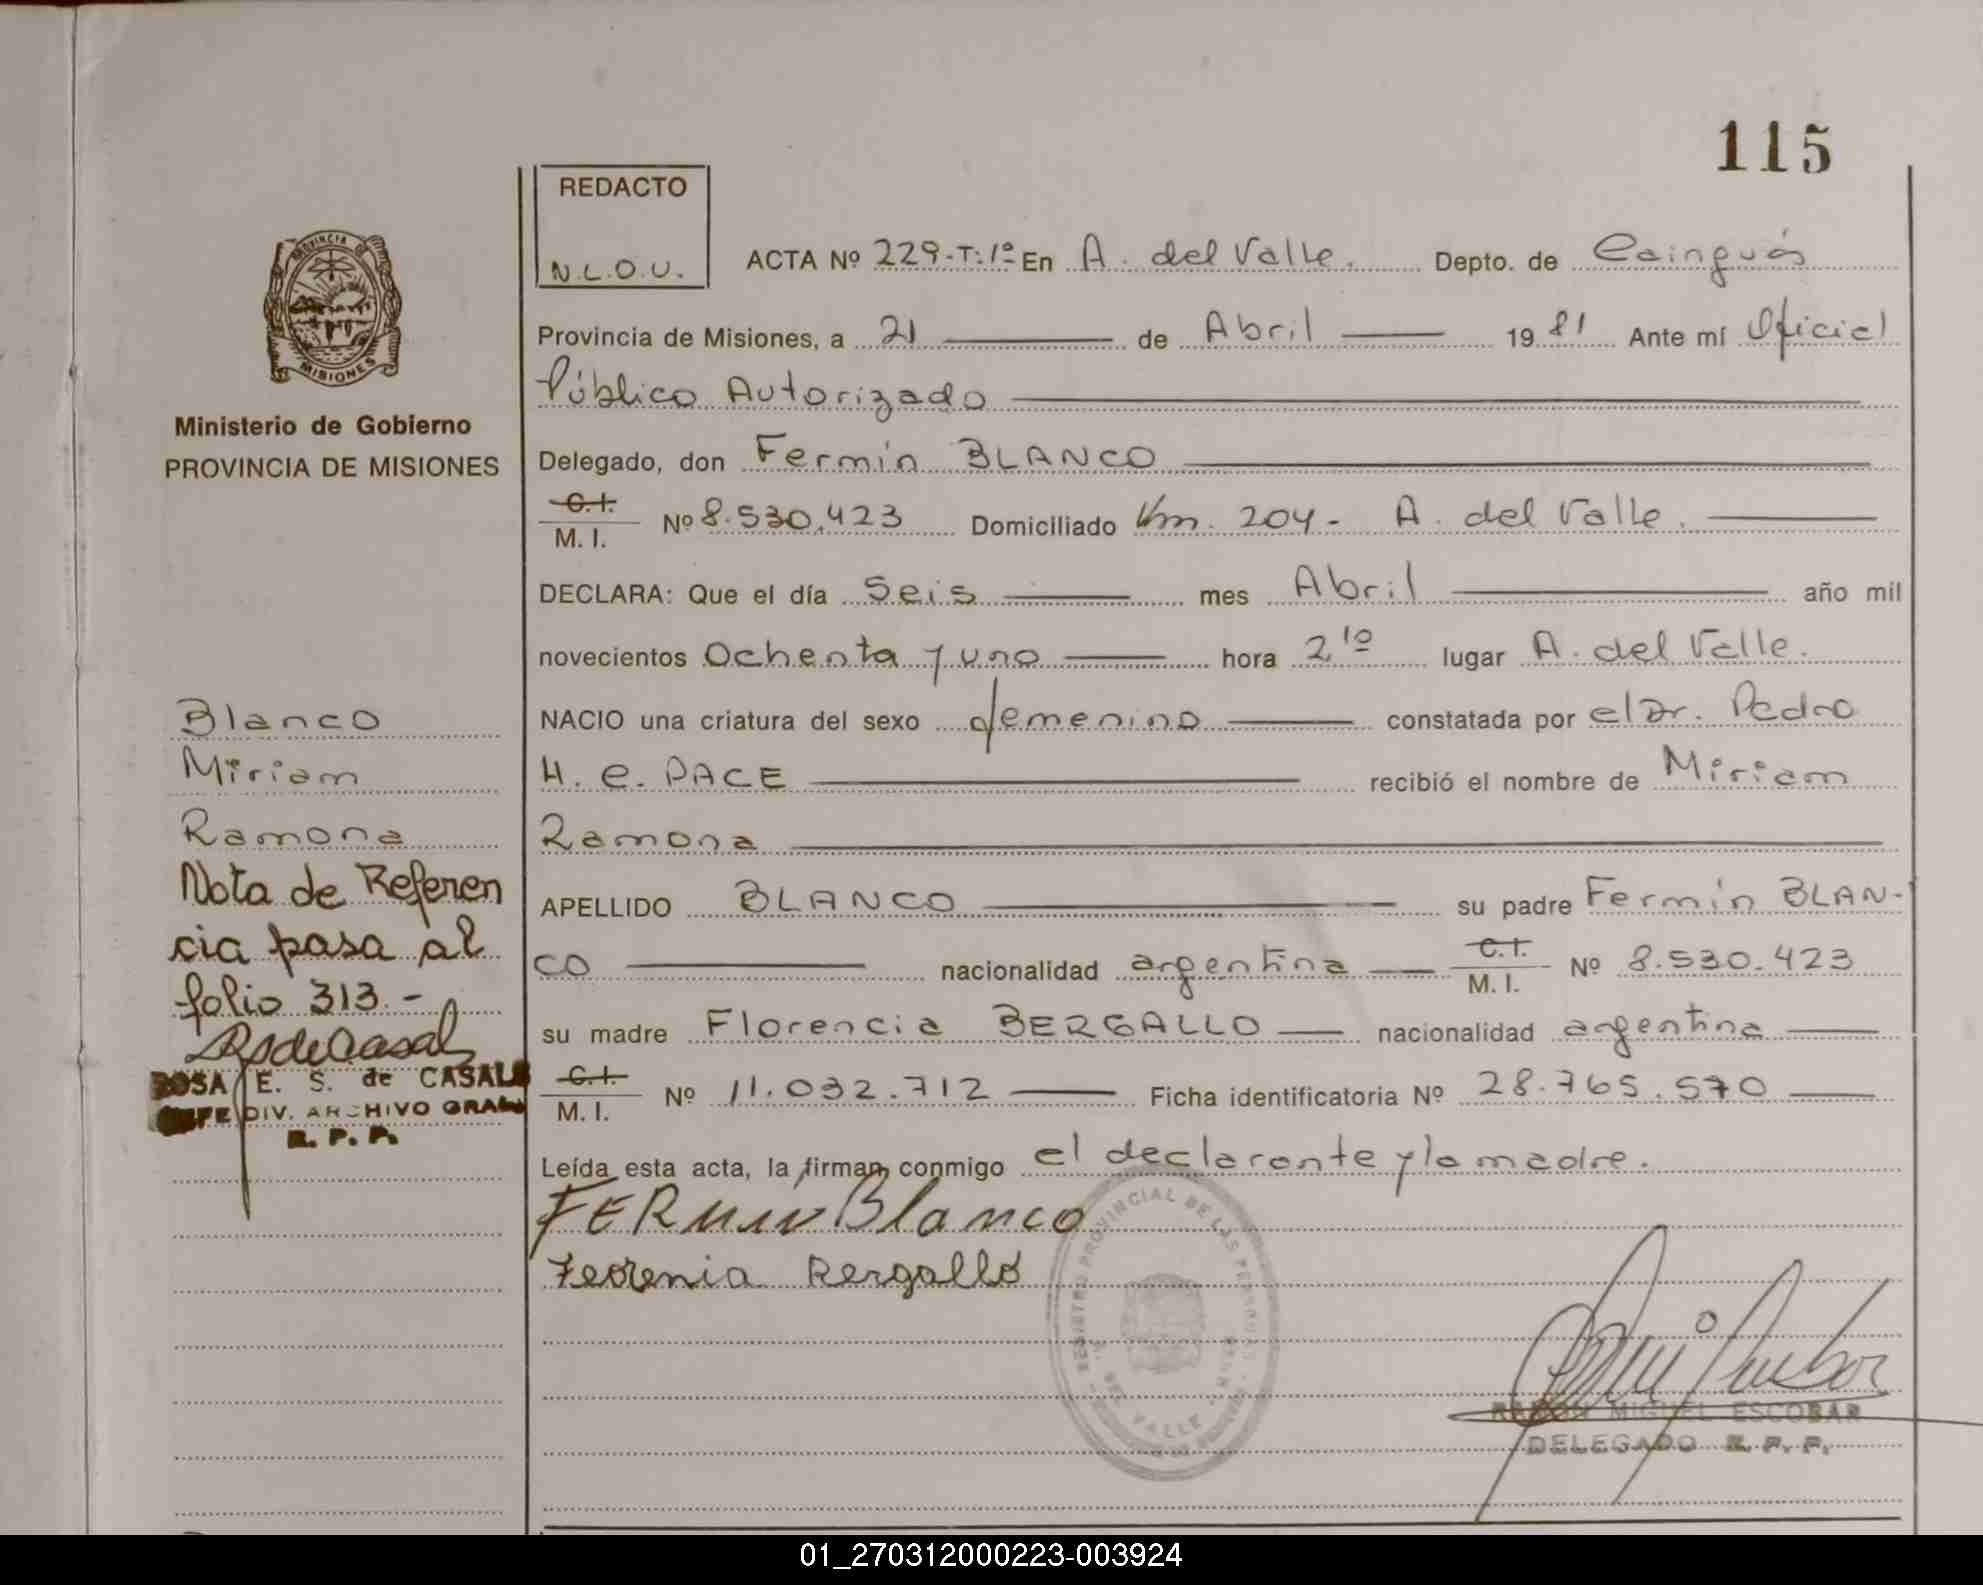 115
REDACTO
N.L.O.U.
PROVINCIA DE
MISIONES
Ministerio de Gobierno
PROVINCIA DE MISIONES
ACTA Nº 229-T:1º En A. del Valle. Depto. de Cainguás
Provincia de Misiones, a 21 de Abril 1981 Ante mí Oficial
Público Autorizado
Delegado, don Fermín BLANCO
C.I.
M. I. Nº 8.530.423 Domiciliado Km. 204- A. del Valle.
DECLARA: Que el día Seis mes Abril año mil
novecientos Ochenta y uno hora 2 10 lugar A. del Valle.
NACIO una criatura del sexo femenino constatada por el Dr. Pedro
H. C. PACE recibió el nombre de Miriam
Ramona
APELLIDO BLANCO su padre Fermín BLAN-
CO nacionalidad argentina C.I. M. I. Nº 8.530.423
su madre Florencia BERGALLO nacionalidad argentina
C.I.
M. I. Nº 11.032.712 Ficha identificatoria Nº 28.765.570
Leída esta acta, la firman conmigo el declarante y la madre.
FERMIN Blanco
Bergalló
Blanco
Miriam
Ramona
Nota de Referen
cia pasa al
folio 313.-
RSdeCasal
ROSA E. S. de CASALE
JEFE DIV. ARCHIVO GRAL
R. P. P.
REGISTRO PROVINCIAL DE LAS PERSONAS
DEL VALLE
RAMON MIGUEL ESCOBAR
DELEGADO R. P. P.
01_270312000223-003924